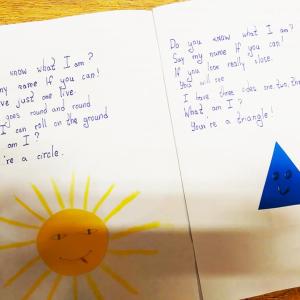 know what I am?
my name If you can!
've just one live.
goes round and round
I can roll on the ground
am I?
're a circle.
Do you know what I am?
Say my name If you can!
If you look really close.
You will see
I have three sides one, two, thre
What am I?
Your're a triangle!